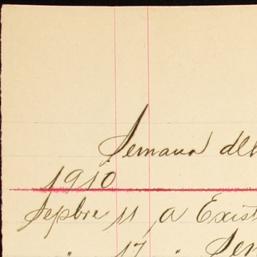 Semana del
1910
Sepbre 11 a Exist
" 17 "